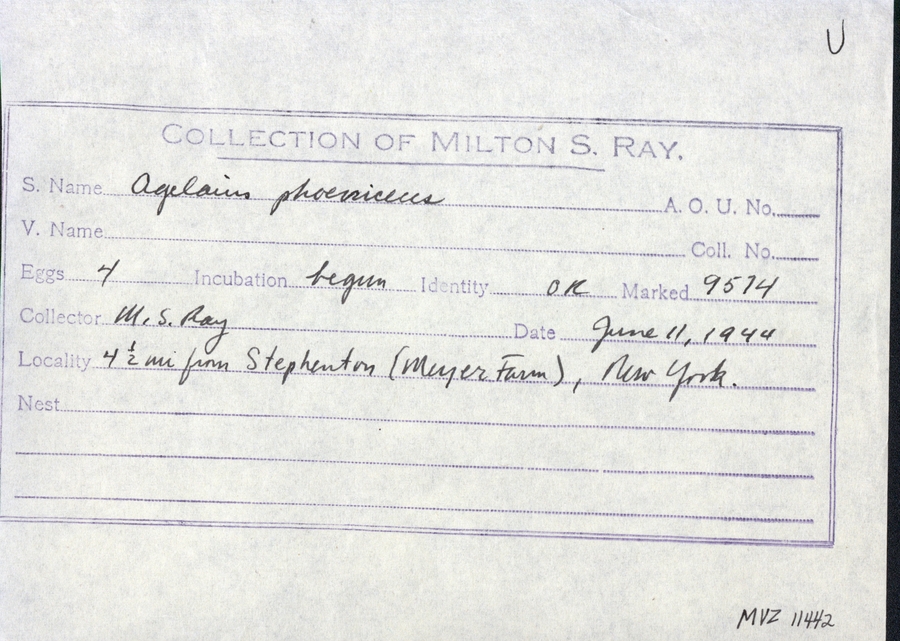 U
COLLECTION OF MILTON S. RAY.
S. Name Agelaius phoeniceus A. O. U. No.
V. Name Coll. No.
Eggs 4 Incubation begun Identity OK Marked 9574
Collector M. S. Ray Date June 11, 1944
Locality 4 1/2 mi from Stephenton (Meyer Farm), New York.
Nest
MVZ 11442